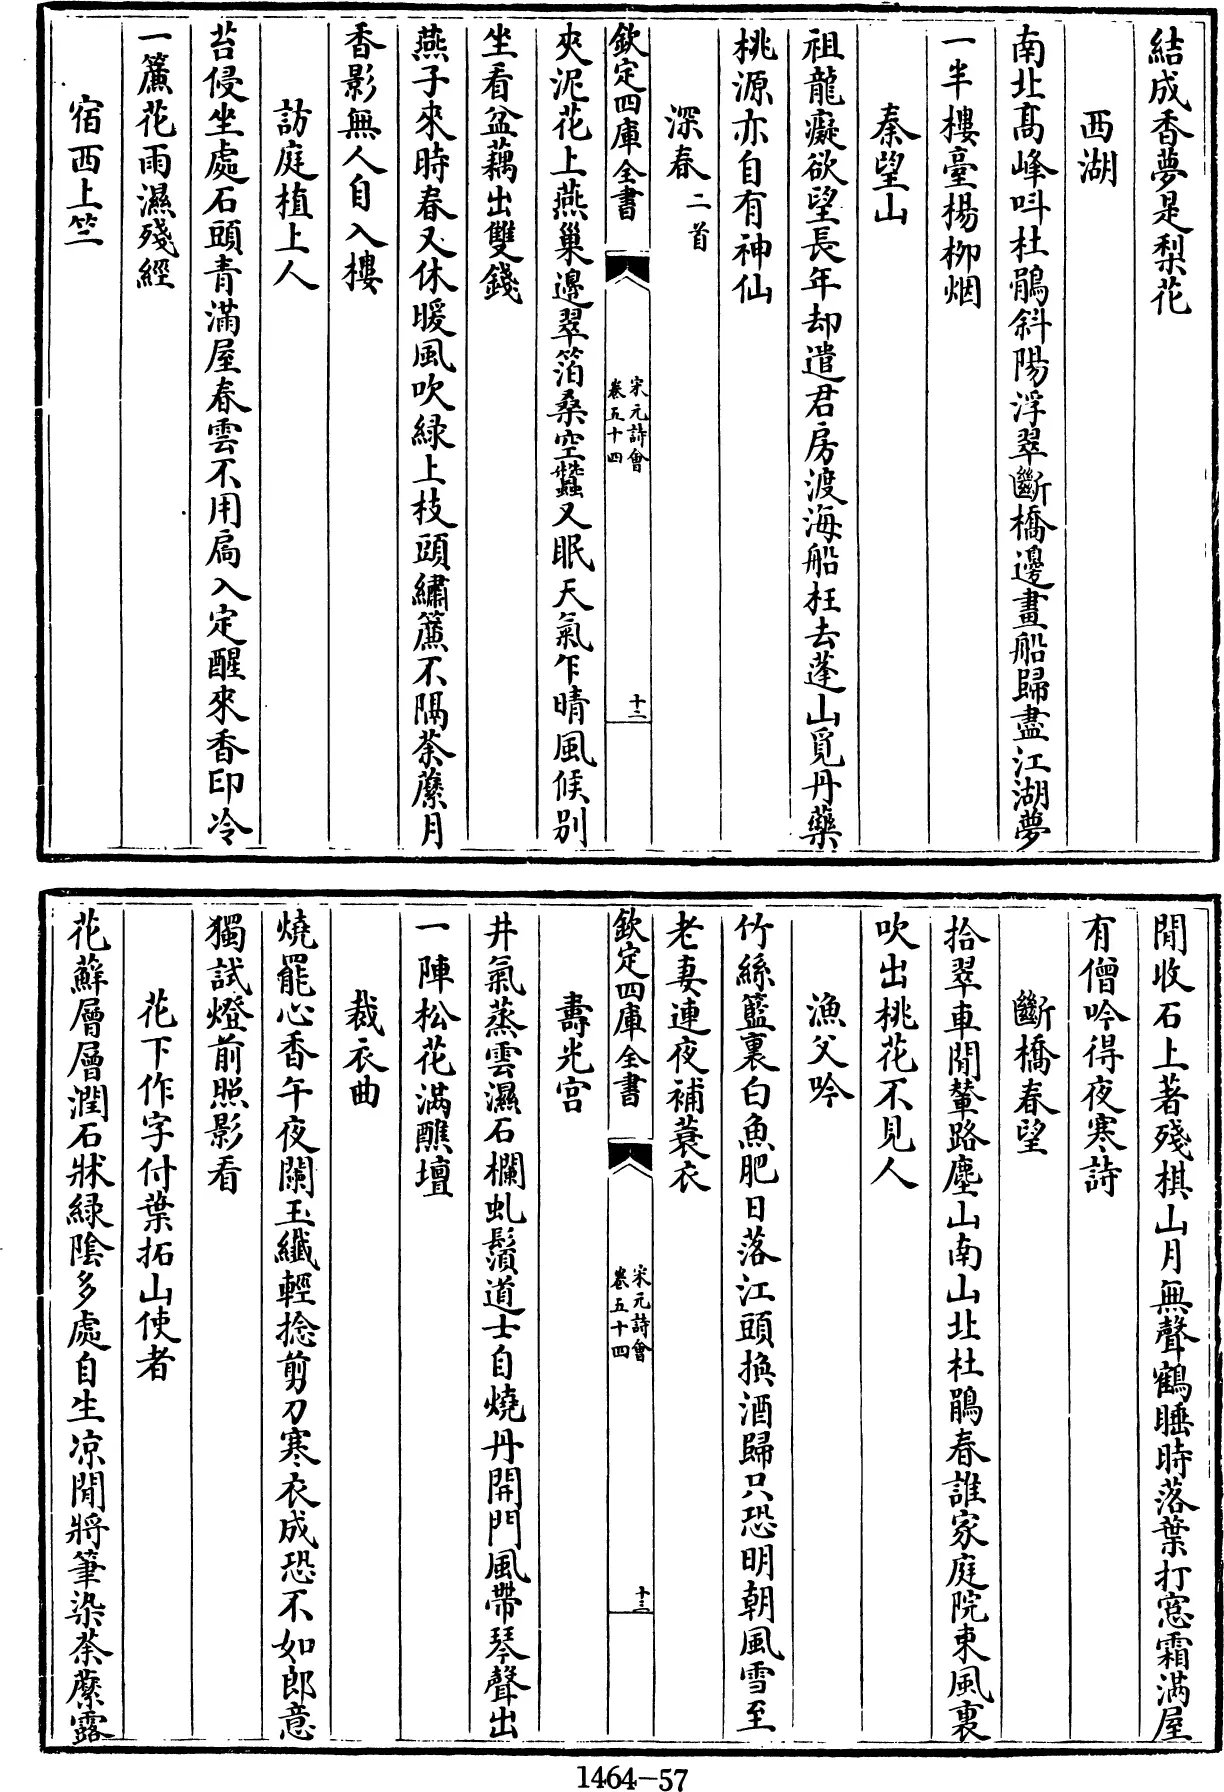 結成香夢是梨花
西湖
南北高峰呌杜鵑斜陽浮翠斷橋邊畫船歸盡江湖夢
一半樓臺楊柳烟
秦望山
祖龍癡欲望長年却遣君房渡海船枉去蓬山覓丹藥
桃源亦自有神仙
深春二首
欽定四庫全書
宋元詩會
卷五十四
十二
夾泥花上燕巢邊翠箔桑空蠶又眠天氣乍晴風候别
坐看盆藕出雙錢
燕子來時春又休暖風吹緑上枝頭繡簾不隔荼䕷月
香影無人自入樓
訪庭植上人
苔侵坐處石頭青滿屋春雲不用扃入定醒來香印冷
一簾花雨濕殘經
宿西上竺
閒收石上著殘棋山月無聲鶴睡時落葉打窓霜滿屋
有僧吟得夜寒詩
斷橋春望
拾翠車閒輦路塵山南山北杜鵑春誰家庭院東風裏
吹出桃花不見人
漁父吟
竹絲籃裏白魚肥日落江頭換酒歸只恐明朝風雪至
老妻連夜補蓑衣
欽定四庫全書
宋元詩會
卷五十四
十三
壽光宫
井氣蒸雲濕石欄虬鬚道士自燒丹開門風帶琴聲出
一陣松花滿醮壇
裁衣曲
燒罷心香午夜闌玉纖輕捻剪刀寒衣成恐不如郎意
獨試燈前照影看
花下作字付葉拓山使者
花蘚層層潤石牀緑陰多處自生凉閒將筆染荼䕷露
1464-57